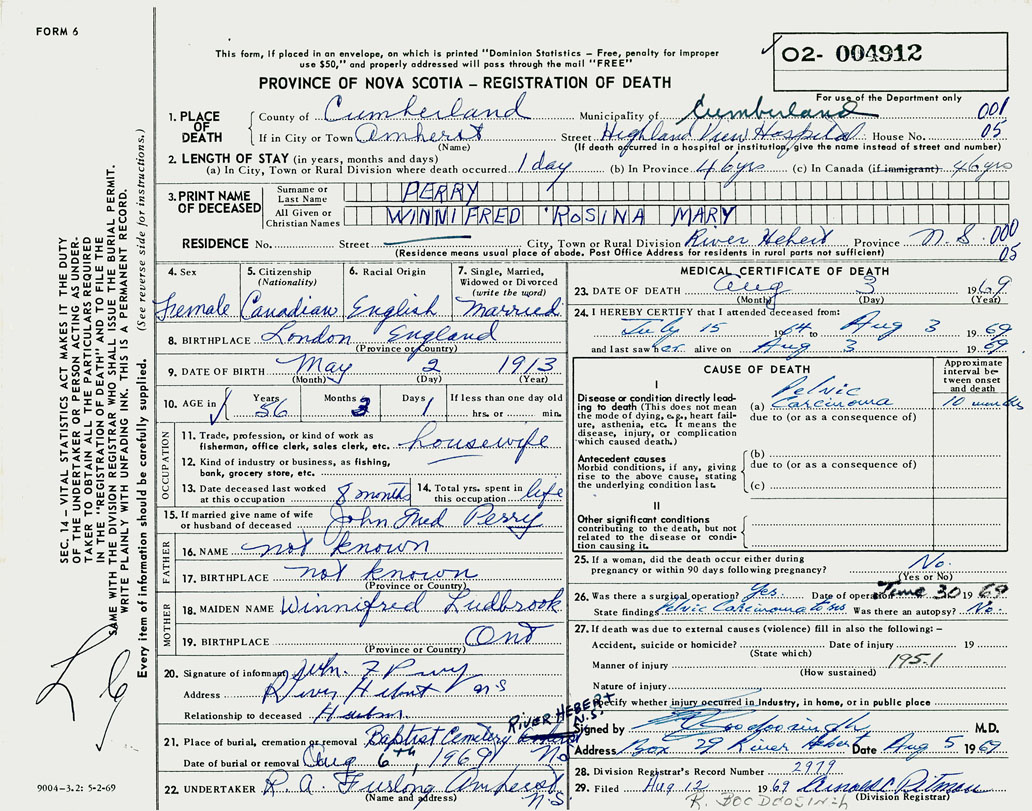 FORM 6
This form, if placed in an envelope, on which is printed "Dominion Statistics – Free, penalty for improper
use $50," and properly addressed will pass through the mail "FREE"
02- 004912
For use of the Department only
PROVINCE OF NOVA SCOTIA – REGISTRATION OF DEATH
1. PLACE OF DEATH County of Cumberland Municipality of Cumberland 001
If in City or Town Amherst Street Highland View Hospital House No. 05
(Name) (If death occurred in a hospital or institution, give the name instead of street and number)
2. LENGTH OF STAY (in years, months and days)
(a) In City, Town or Rural Division where death occurred 1 day (b) In Province 46 yrs (c) In Canada (if immigrant) 46 yrs
3. PRINT NAME OF DECEASED Surname or Last Name PERRY
All Given or Christian Names WINNIFRED ROSINA MARY
RESIDENCE No. Street City, Town or Rural Division River Hebert Province N.S. 000
(Residence means usual place of abode. Post Office Address for residents in rural parts not sufficient) 05
4. Sex Female
5. Citizenship (Nationality) Canadian
6. Racial Origin English
7. Single, Married, Widowed or Divorced (write the word) Married
8. BIRTHPLACE London England
(Province or Country)
9. DATE OF BIRTH May 2 1913
(Month) (Day) (Year)
10. AGE in Years 56 Months 3 Days 1 If less than one day old
hrs. or min.
OCCUPATION
11. Trade, profession, or kind of work as
fisherman, office clerk, sales clerk, etc. housewife
12. Kind of industry or business, as fishing,
bank, grocery store, etc.
13. Date deceased last worked at this occupation 8 months
14. Total yrs. spent in this occupation life
15. If married give name of wife or husband of deceased John Fred Perry
FATHER
16. NAME not known
17. BIRTHPLACE not known
(Province or Country)
MOTHER
18. MAIDEN NAME Winnifred Ludbrook
19. BIRTHPLACE Ont
(Province or Country)
20. Signature of informant John F Perry
Address River Hebert N.S
Relationship to deceased
21. Place of burial, cremation or removal Baptist Cemetery RIVER HEBERT N.S.
Date of burial or removal Aug 6th, 1969
22. UNDERTAKER R. A. Furlong Amherst N.S
(Name and address)
MEDICAL CERTIFICATE OF DEATH
23. DATE OF DEATH Aug 3 1969
(Month) (Day) (Year)
24. I HEREBY CERTIFY that I attended deceased from:
July 15 1964 to Aug 3 1969
and last saw her alive on Aug 3 1969
CAUSE OF DEATH
Approximate interval between onset and death
I
Disease or condition directly leading to death (This does not mean the mode of dying, e.g., heart failure, asthenia, etc. It means the disease, injury, or complication which caused death.)
(a) Pelvic Carcinoma 10 months
due to (or as a consequence of)
Antecedent causes
Morbid conditions, if any, giving rise to the above cause, stating the underlying condition last.
(b)
due to (or as a consequence of)
(c)
II
Other significant conditions
contributing to the death, but not related to the disease or condition causing it.
25. If a woman, did the death occur either during
pregnancy or within 90 days following pregnancy? No.
(Yes or No)
26. Was there a surgical operation? Yes. Date of operation June 30 1969
State findings Pelvic Carcinomatosis Was there an autopsy? No.
27. If death was due to external causes (violence) fill in also the following: –
Accident, suicide or homicide? Date of injury 19
(State which)
Manner of injury 195.1
(How sustained)
Nature of injury
Specify whether injury occurred in industry, in home, or in public place
Signed by M.D.
Address Box 29 River Hebert Date Aug 5 1969
28. Division Registrar's Record Number 2979
29. Filed Aug 12 1969 Arnold E Pitman
(Division Registrar)
R. BOODOOSINGH
SEC. 14 – VITAL STATISTICS ACT MAKES IT THE DUTY
OF THE UNDERTAKER OR PERSON ACTING AS UNDER-
TAKER TO OBTAIN ALL THE PARTICULARS REQUIRED
IN THE "REGISTRATION OF DEATH" AND TO FILE THE
SAME WITH THE DIVISION REGISTRAR WHO SHALL ISSUE THE BURIAL PERMIT.
WRITE PLAINLY WITH UNFADING INK. THIS IS A PERMANENT RECORD.
Every item of information should be carefully supplied. (See reverse side for instructions.)
9004-3.2: 5-2-69